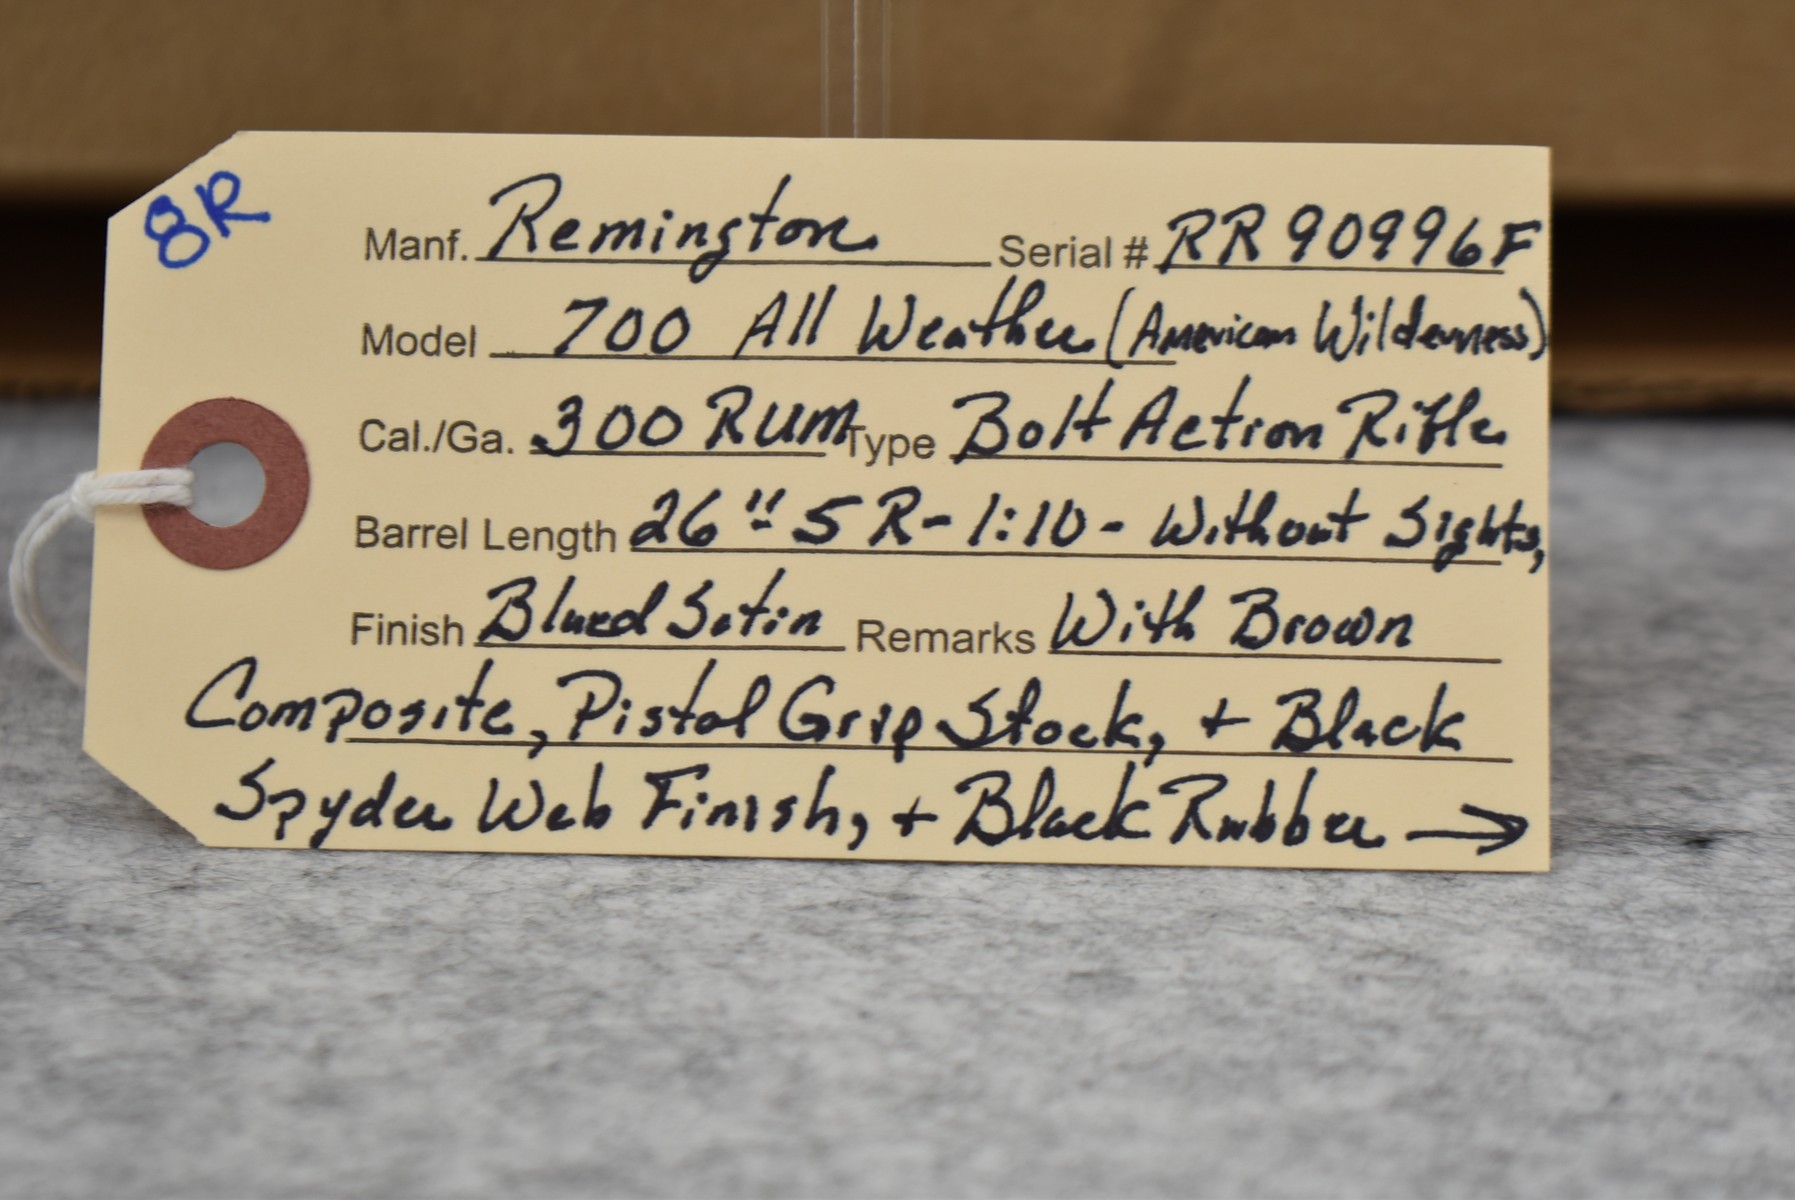 8R
Manf. Remington Serial # RR90996F
Model 700 All Weather (American Wilderness)
Cal./Ga. .300 RUM Type Bolt Action Rifle
Barrel Length 26" 5R-1:10- Without Sights,
Finish Blued Satin Remarks With Brown
Composite, Pistol Grip Stock, + Black
Spyder Web Finish, + Black Rubber →